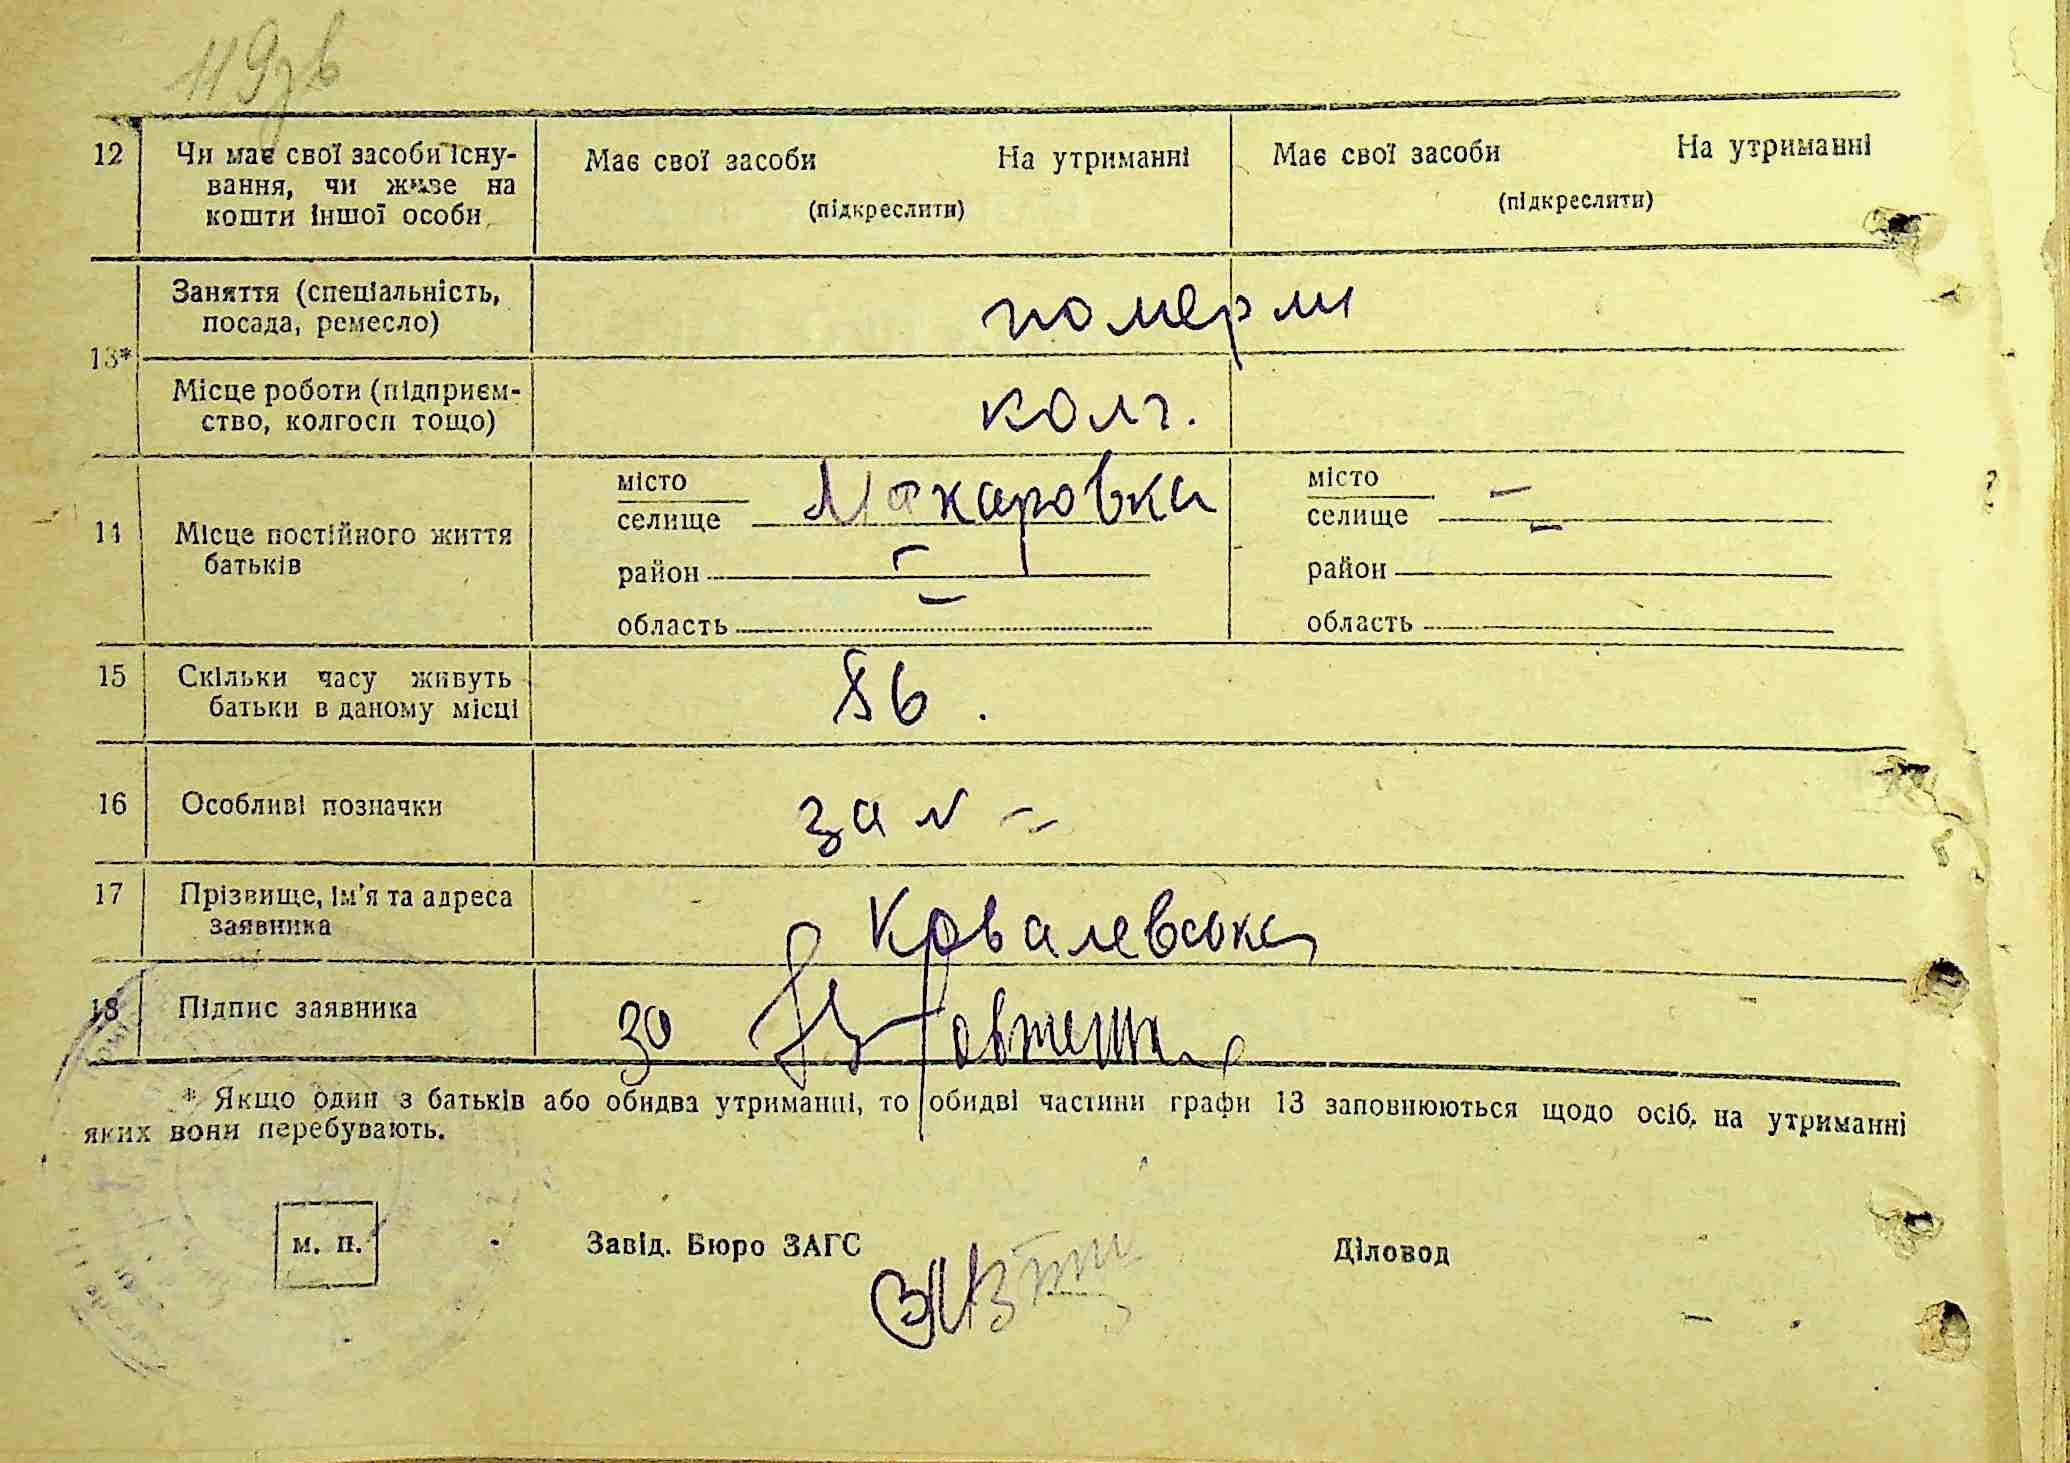 119зв
12 Чи має свої засоби існу- Має свої засоби На утриманні Має свої засоби На утриманні
вання, чи живе на (підкреслити) (підкреслити)
кошти іншої особи
13* Заняття (спеціальність, померли
посада, ремесло)
Місце роботи (підприєм- колг.
ство, колгосп тощо)
14 Місце постійного життя батьків
місто селище Макаровка місто селище —
район — район —
область — область
15 Скільки часу живуть 86.
батьки в даному місці
16 Особливі позначки
17 Прізвище, ім'я та адреса Ковалевська
заявника
18 Підпис заявника за
* Якщо один з батьків або обидва утриманці, то обидві частини графи 13 заповнюються щодо осіб, на утриманні
яких вони перебувають.
м. п. Завід. Бюро ЗАГС Діловод